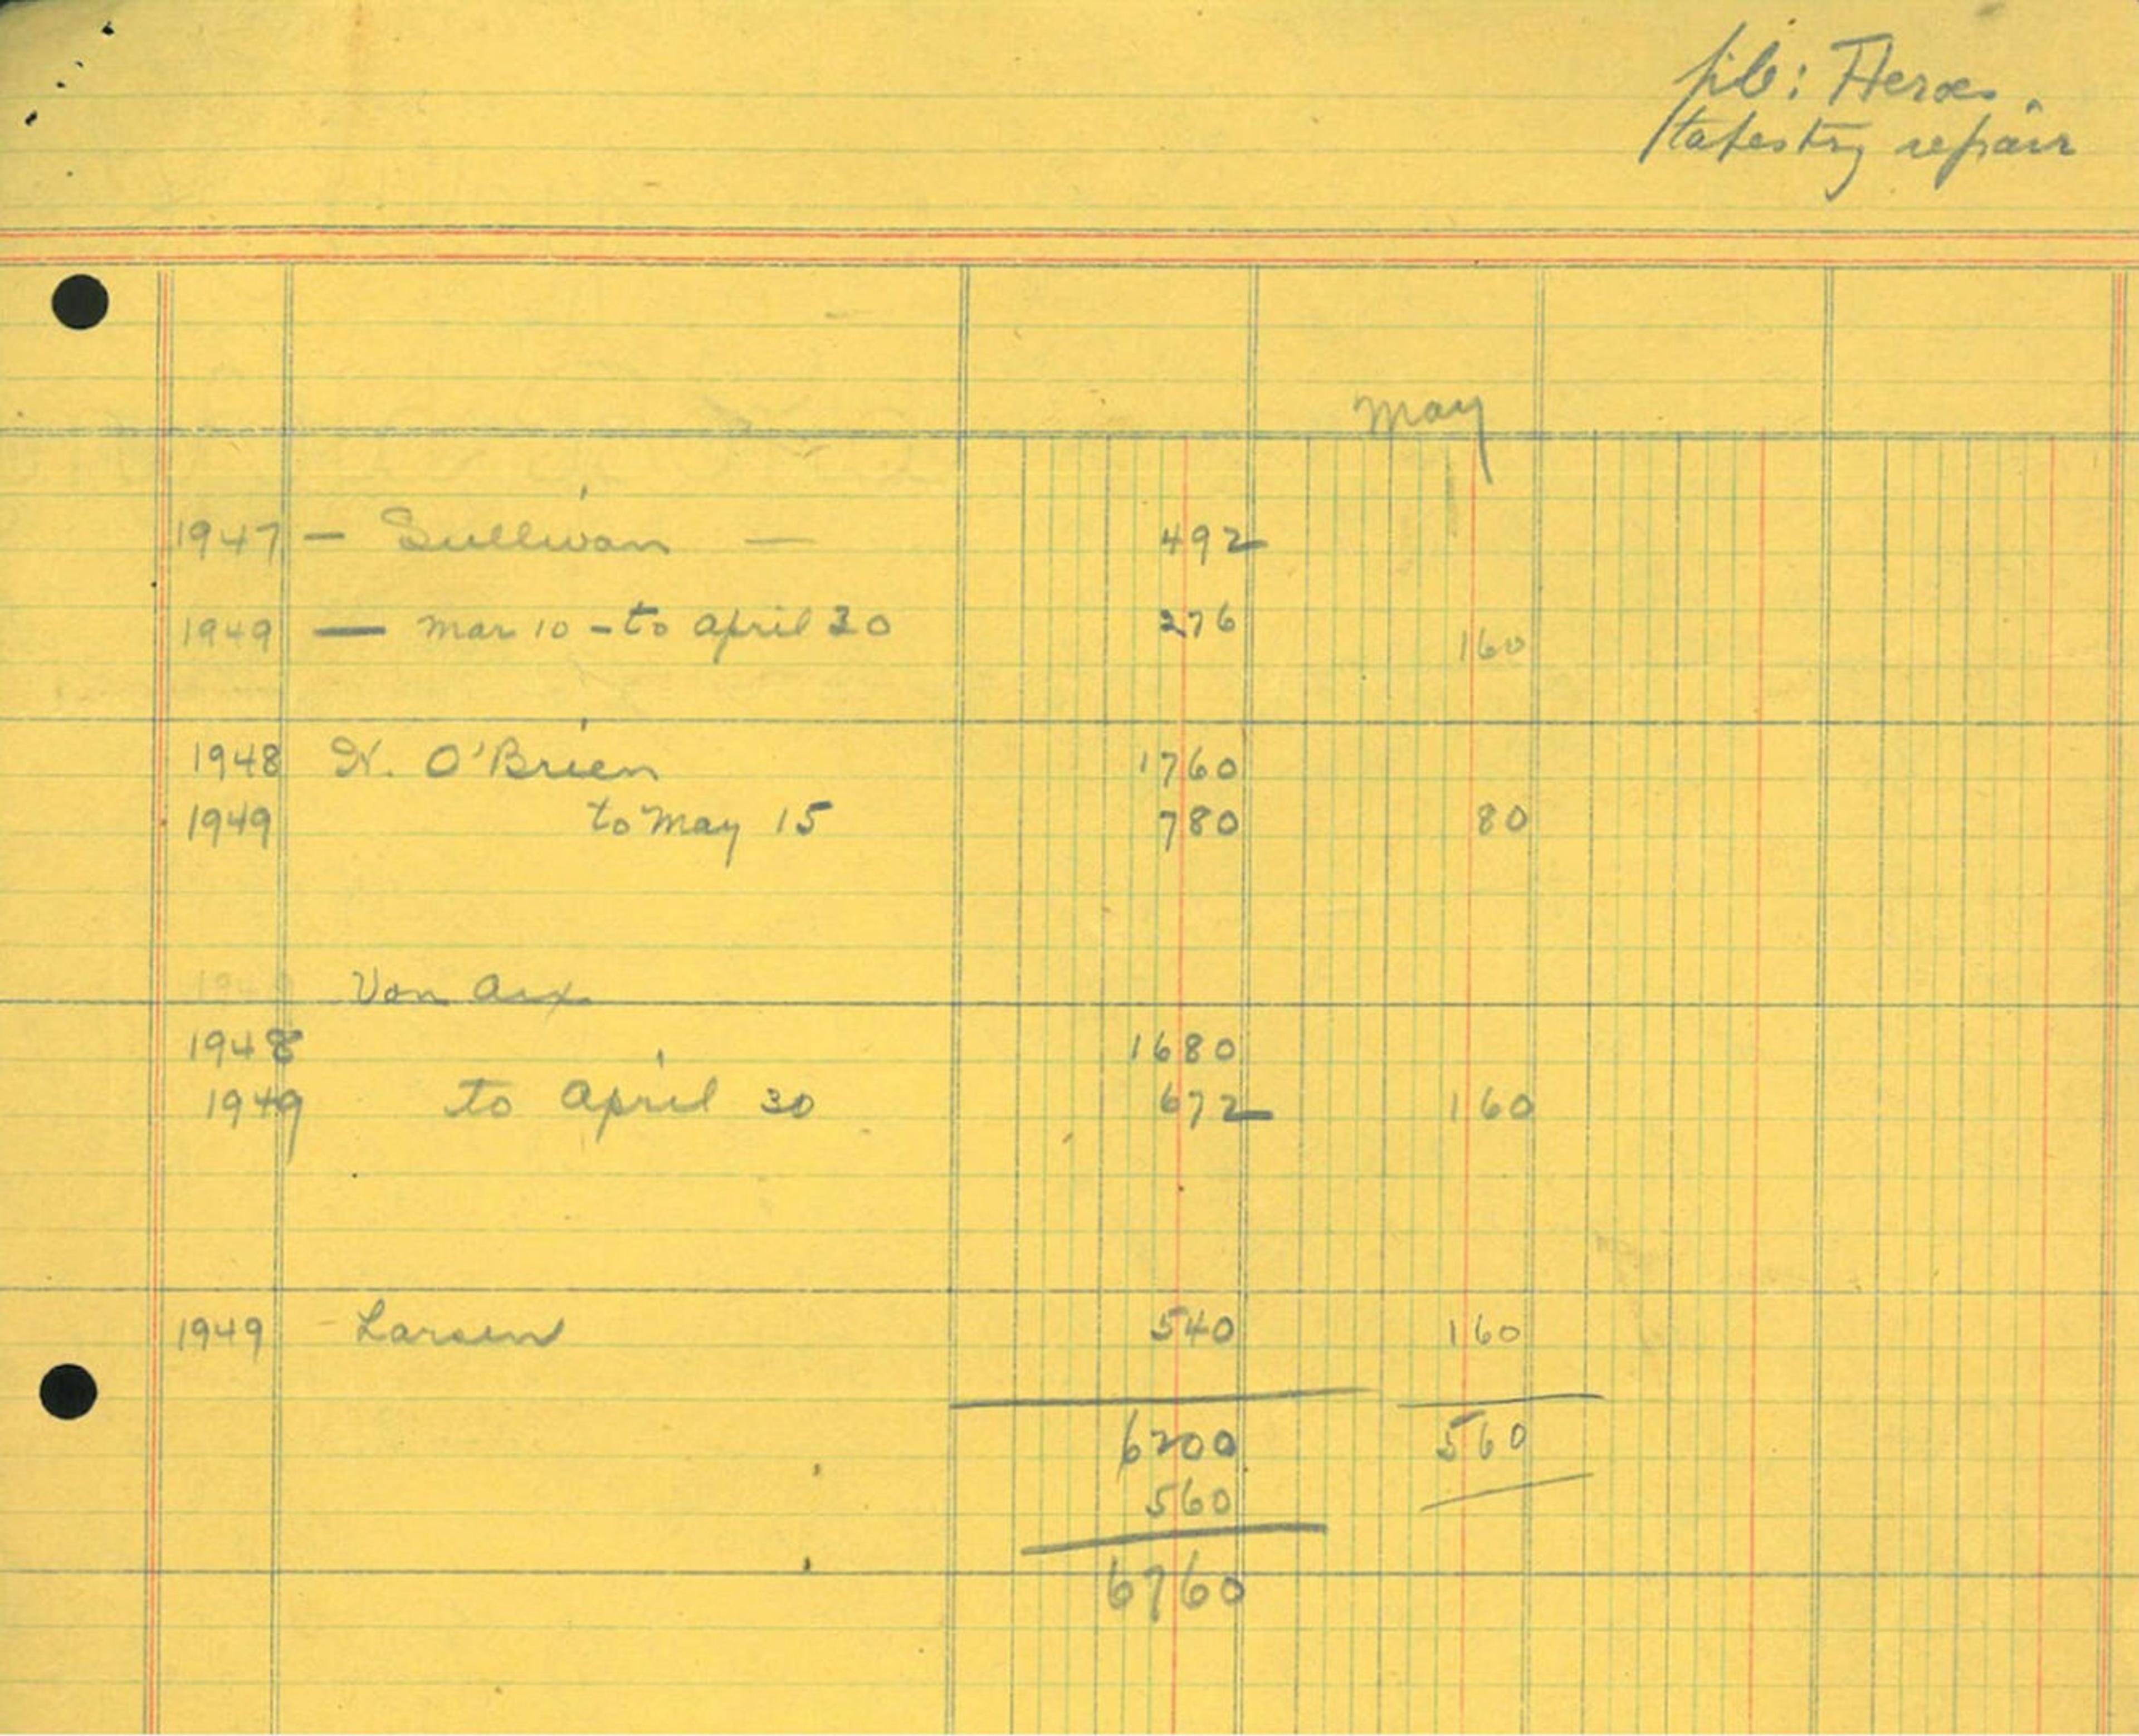 file: Heroes.
tapestry repair
May
1947 — Sullivan — 492
1949 — Mar 10 - to April 30 276 160
1948 N. O'Brien 1760
1949 to May 15 780 80
Von Arx
1948 1680
1949 to April 30 672 160
1949 - Larsen 540 160
6200 560
560
6760